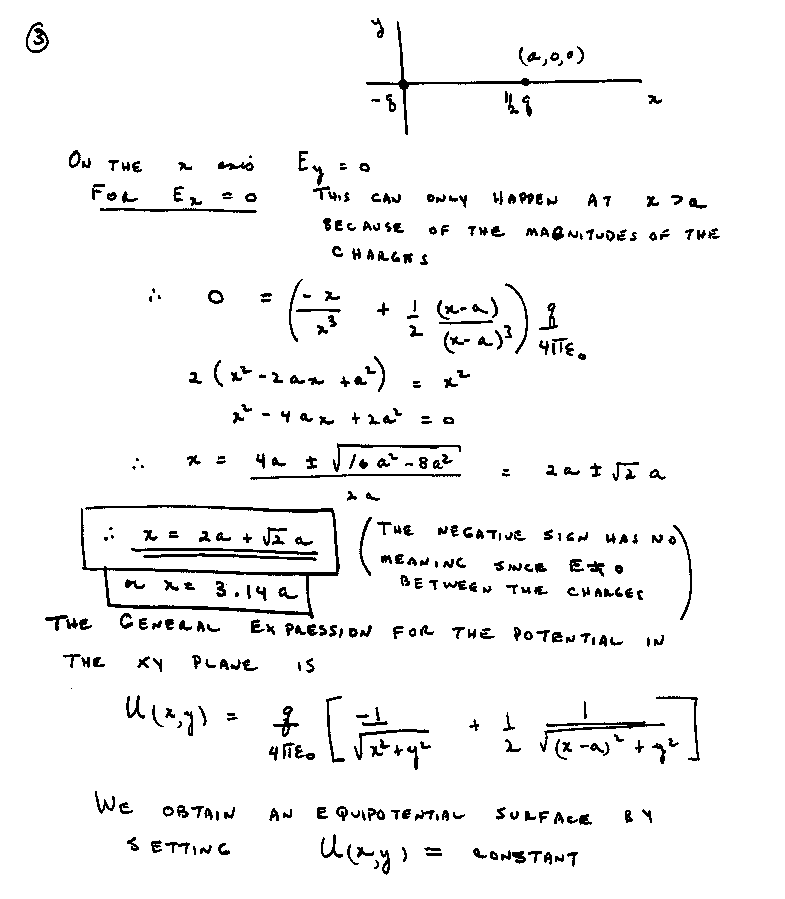 ③
y
(a,0,0)
-q ½q x
ON THE x axis Ey = 0
FOR Ex = 0 THIS CAN ONLY HAPPEN AT x > a
BECAUSE OF THE MAGNITUDES OF THE
CHARGES
∴ 0 = (-x/x³ + 1/2 (x-a)/(x-a)³) q/4πε₀
2(x²-2ax+a²) = x²
x² - 4ax + 2a² = 0
∴ x = 4a ± √16a²-8a² / 2a = 2a ± √2 a
∴ x = 2a + √2 a (THE NEGATIVE SIGN HAS NO
MEANING SINCE E≠0
or x = 3.14a BETWEEN THE CHARGES)
THE GENERAL EXPRESSION FOR THE POTENTIAL IN
THE XY PLANE IS
U(x,y) = q/4πε₀ [-1/√x²+y² + 1/2 1/√(x-a)²+y²]
WE OBTAIN AN EQUIPOTENTIAL SURFACE BY
SETTING U(x,y) = CONSTANT